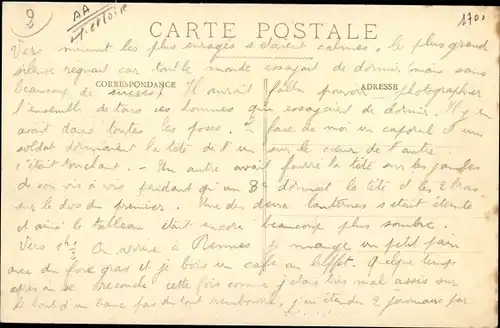 2
AA
1700
CARTE POSTALE
Vers minuit les plus enragés s'étaient calmés, le plus grand
silence régnait car tout le monde essayait de dormir (mais sans
beaucoup de succès) Il aurait fallu pouvoir photographier
CORRESPONDANCE
ADRESSE
l'ensemble de tous ces hommes qui essayaient de dormir. Il y en
avait dans toutes les poses. En face de moi un caporal et un
soldat dormaient la tête de l'un sur le cœur de l'autre.
c'était touchant. - Un autre avait fourré la tête sur les jambes
de son vis à vis pendant qu'un 3e dormait la tête et les 2 bras
sur le dos du premier. Une des deux lanternes s'était éteinte
et ainsi le tableau était encore beaucoup plus sombre.
Vers 1h½ On arrive à Rennes je mange un petit pain
avec du foie gras et je bois un café au buffet. Quelque temps
après on se recouche cette fois comme j'étais très mal assis sur
le bord d'un banc pas du tout rembourré, j'ai étendu 2 journaux par